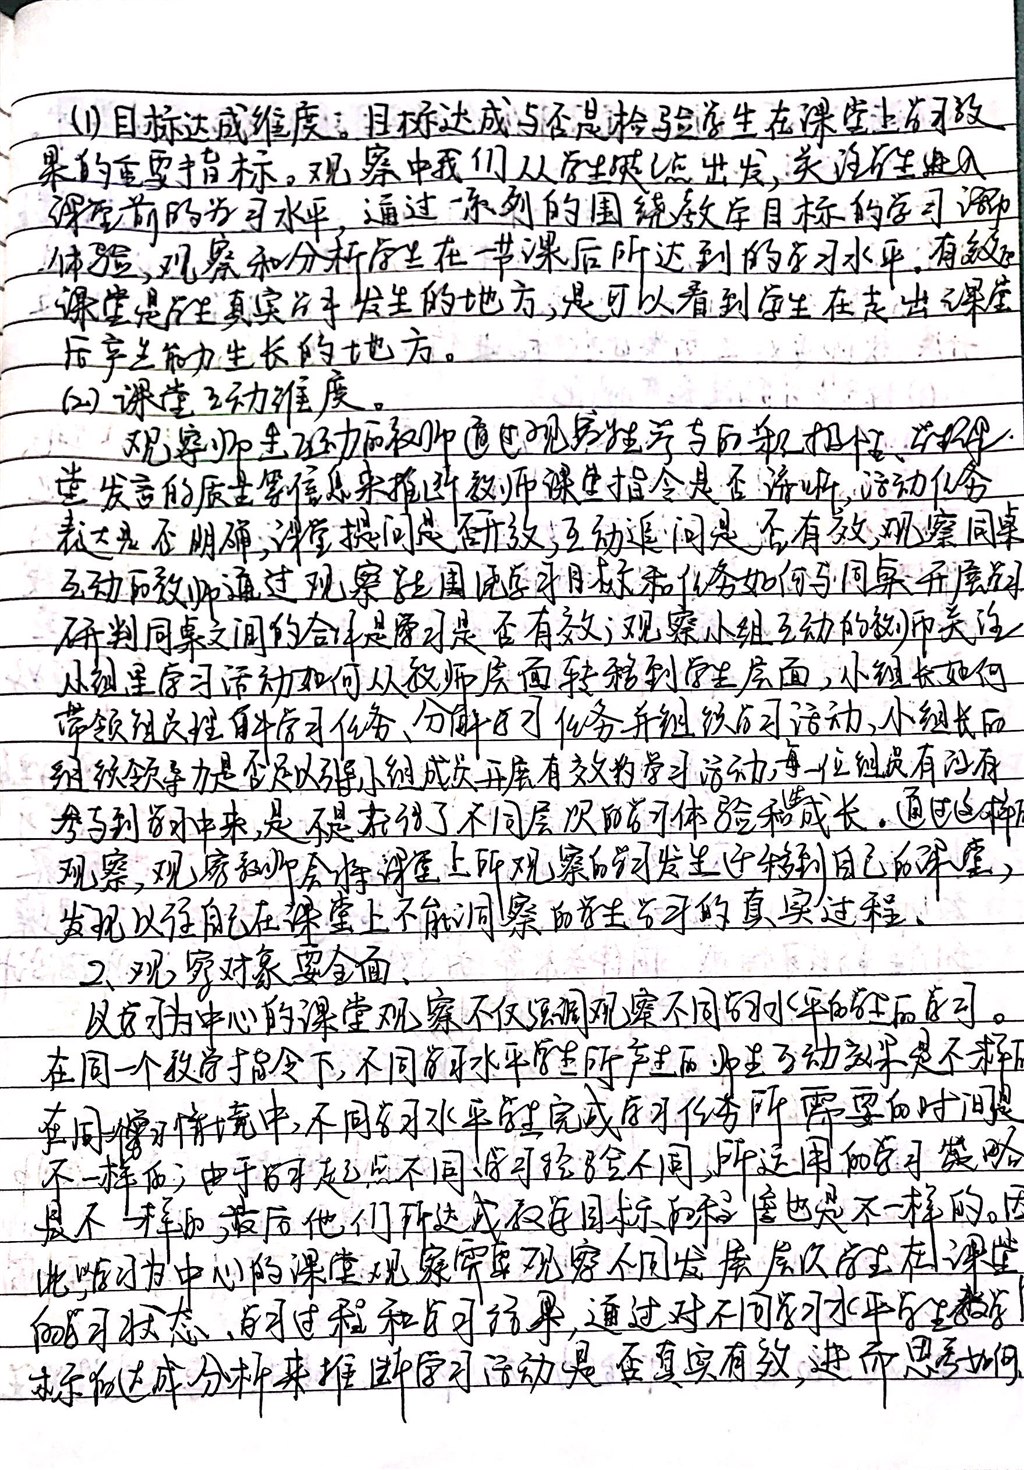 (1)目标达成维度。目标达成与否是检验学生在课堂上学习效
果的重要指标。观察中我们从学生起点出发,关注学生进入
课堂前的学习水平,通过一系列的围绕教学目标的学习
体验,观察和分析学生在一节课后所达到的学习水平。有效的
课堂是学生真实学习发生的地方,是可以看到学生在走出课堂
后产生能力生长的地方。
(2)课堂互动维度。
观察师生互动的教师通过观察学生参与的积极性、
堂发言的质量等信息来推断教师课堂指令是否清晰,活动任务
表达是否明确,课堂提问是否开放,互动追问是否有效,观察同桌
互动的教师通过观察学生围绕学习目标和任务如何与同桌开展学习
研判同桌之间的合作学习是否有效;观察小组互动的教师关注
小组里学习活动如何从教师层面转移到学生层面,小组长如何
带领组员理解学习任务、分解学习任务并组织学习活动,小组长的
组织领导力是否足以引导小组成员开展有效的学习活动,每一位组员有没有
参与到学习中来,是不是获得了不同层次的学习体验和成长。通过这样的
观察,观察教师会将课堂上所观察的学习发生迁移到自己的课堂,
发现以往自己在课堂上不能洞察的学生学习的真实过程。
2、观察对象要全面、
以学习为中心的课堂观察不仅强调观察不同学习水平的学生的学习。
在同一个教学指令下,不同学习水平学生所产生的师生互动效果是不一样的
在同一学习情境中,不同学习水平学生完成学习任务所需要的时间是
不一样的;由于学习起点不同,学习经验不同,所运用的学习策略
是不一样的,最后他们所达成教学目标的程度也是不一样的。因
此,以学习为中心的课堂观察需要观察不同发展层次学生在课堂
的学习状态、学习过程和学习结果,通过对不同学习水平学生教学目
标的达成分析来推断学习活动是否真实有效,进而思考如何